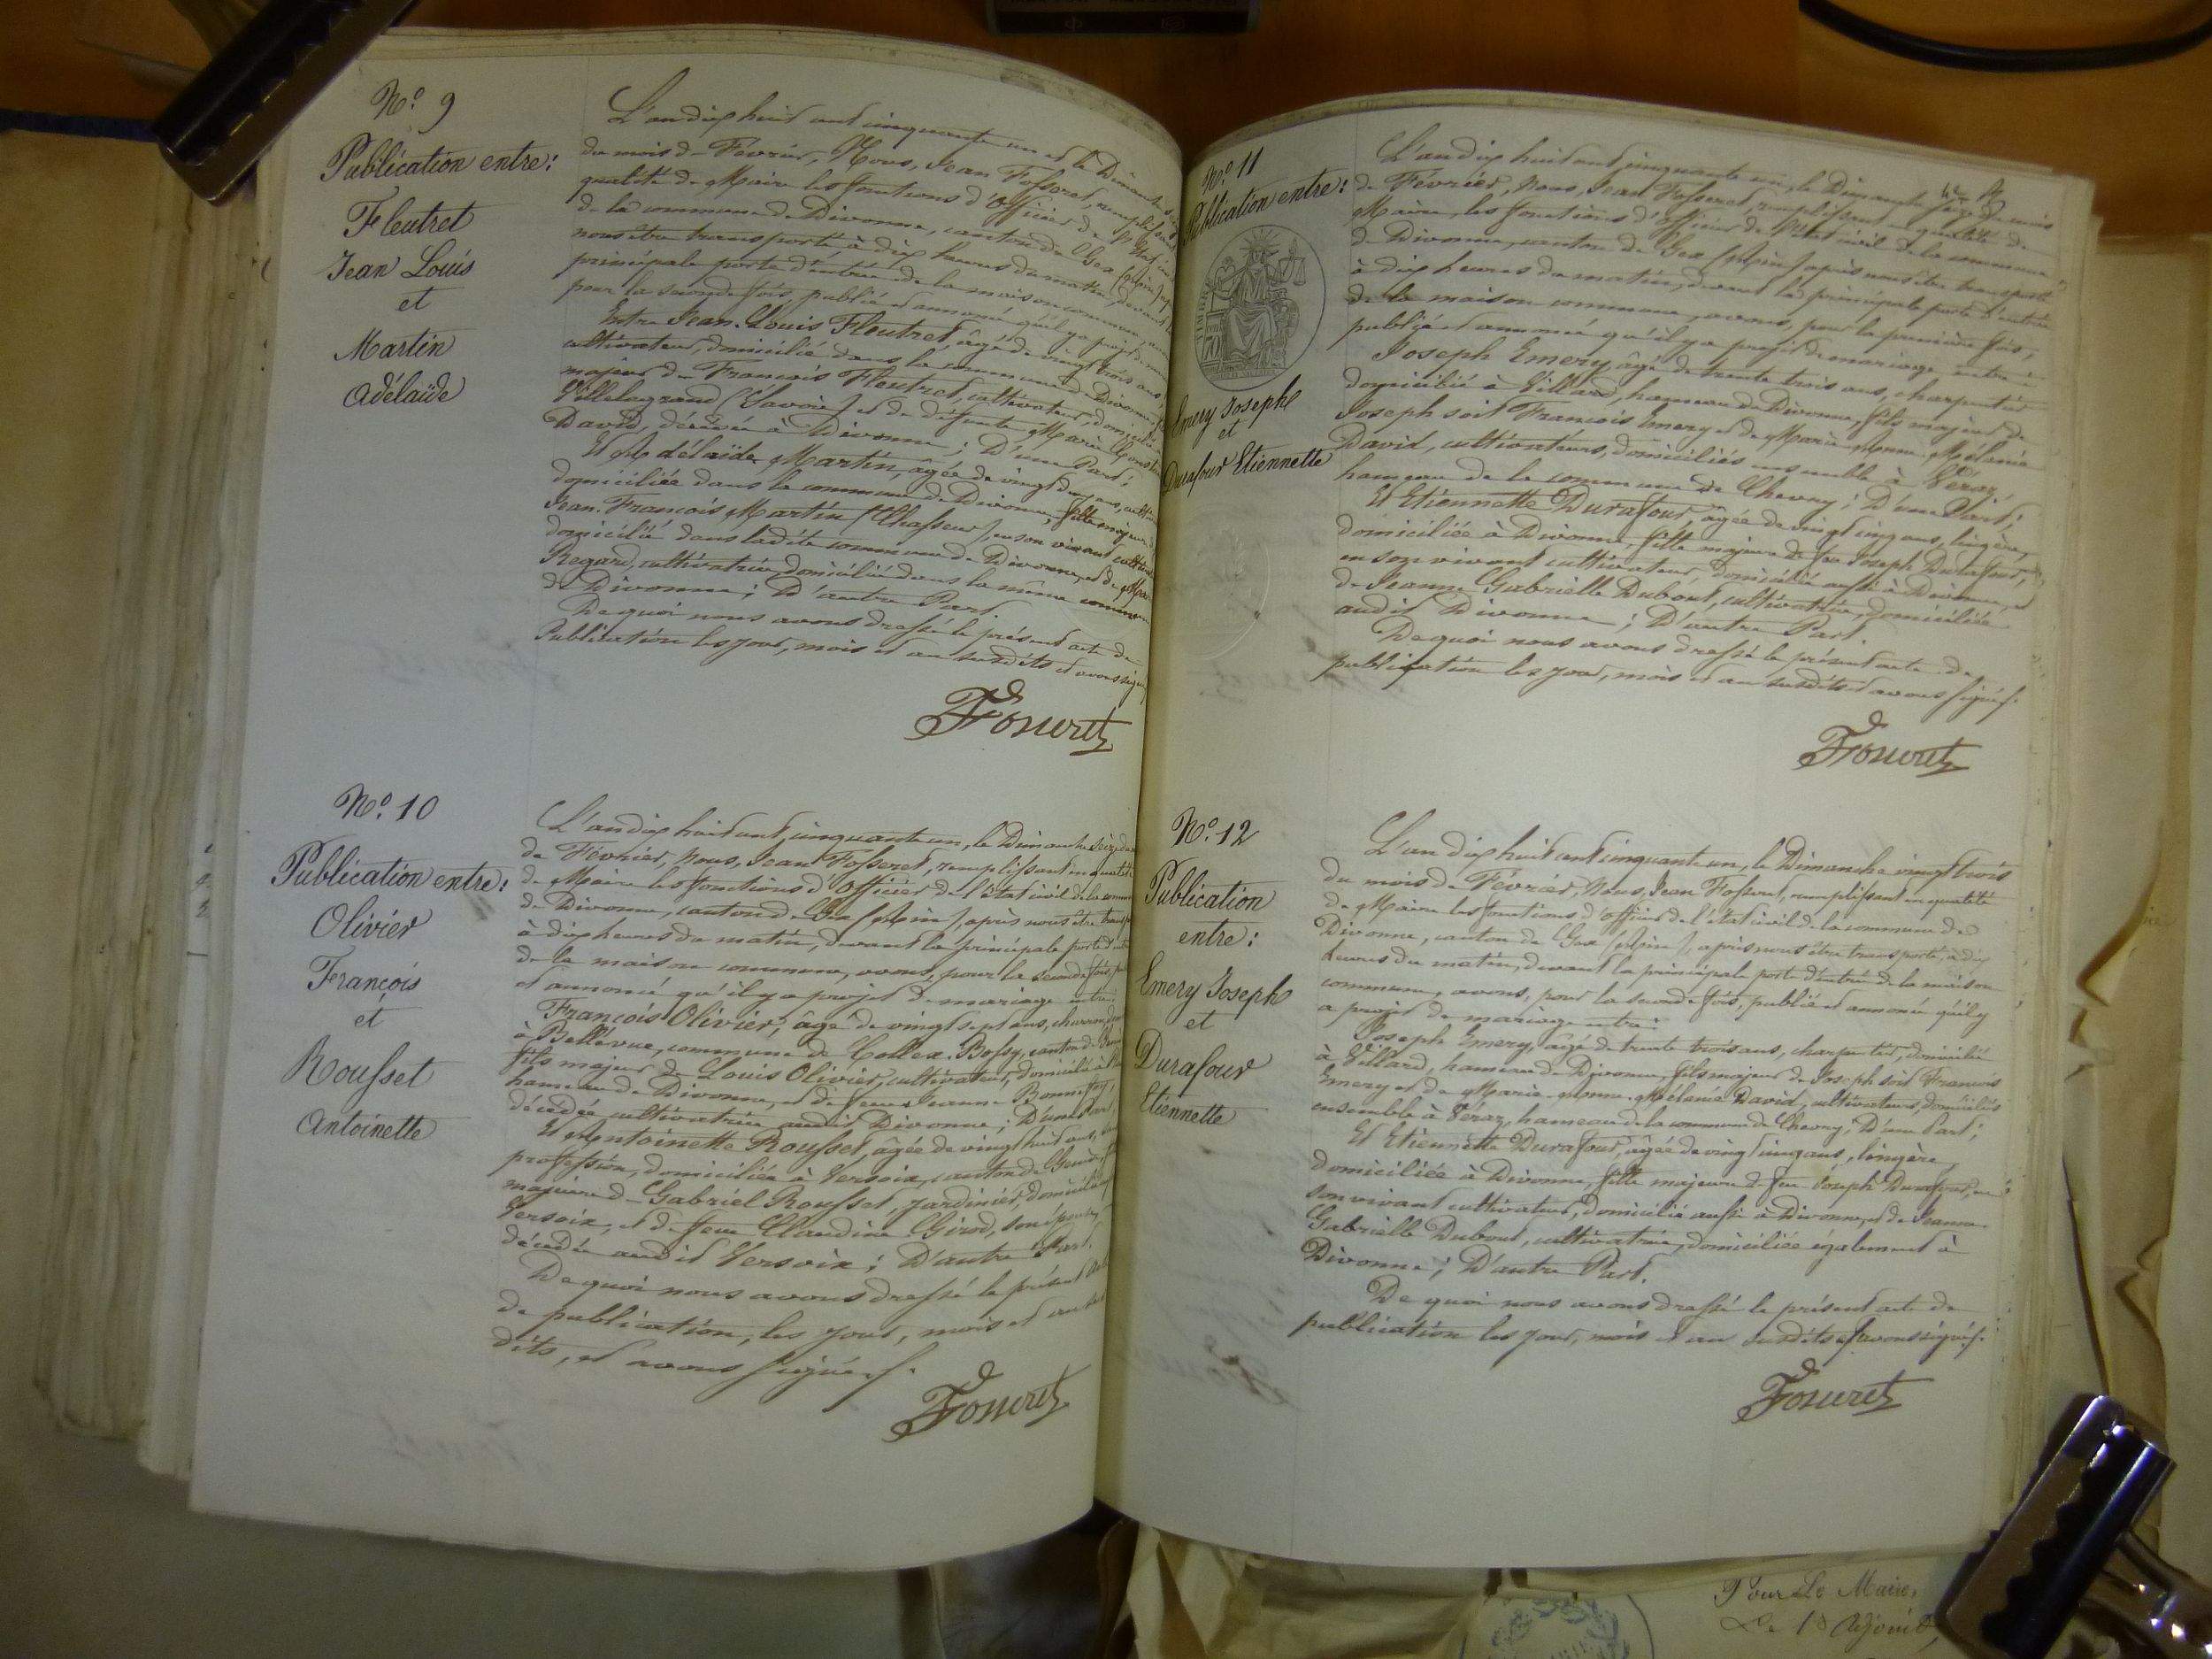 N.o 9
Publication entre:
Fleutret
Jean Louis
et
Martin
Adélaïde
L'an dix huit cent cinquante un et le Dimanche
du mois de Février, Nous, Jean Fosseret, remplissant
qualité de Maire les fonctions d'Officier de l'Etat
de la commune de Divonne, canton de Gex (Ain)
nous être transporté à dix heures du matin, devant
principale porte d'entrée de la maison commune,
pour la seconde fois, publié et annoncé qu'il y a projet de
Entre Jean-Louis Fleutret, âgé de vingt trois ans
cultivateur, domicilié dans la commune de Divonne
majeur de François Fleutret, cultivateur, domicilié
Villelagrand (Savoie) et de défunte Marie
David, décédée à Divonne; D'une Part;
Et Adélaïde Martin, âgée de vingt deux ans,
domiciliée dans la commune de Divonne, fille majeure
Jean-François Martin (Chasseur), en son vivant
domicilié dans ladite commune de Divonne, et de
Regard, cultivatrice, domiciliée dans la même commune
de Divonne; D'autre Part.
De quoi nous avons dressé le présent acte de
Publication les jour, mois et an susdits et avons signé
Fosseret
N.o 10
Publication entre:
Olivier
François
et
Rousset
Antoinette
L'an dix huit cent cinquante un, le Dimanche seize
de Février, Nous, Jean Fosseret, remplissant en qualité
de Maire les fonctions d'Officier de l'Etat civil de la
de Divonne, canton de Gex (Ain), après nous être
à dix heures du matin, devant la principale porte d'entrée
de la maison commune, avons, pour la seconde fois,
et annoncé qu'il y a projet de mariage entre:
François Olivier, âgé de vingt sept ans, charron,
à Bellevue, commune de Collex-Bossy, canton de
fils majeur de Louis Olivier, cultivateur, domicilié à
hameau de Divonne, et de feue Jeanne
décédée cultivatrice audit Divonne; D'une Part;
Et Antoinette Rousset, âgée de vingt huit ans,
profession, domiciliée à Versoix, canton de Genève
majeure de Gabriel Rousset, jardinier, domicilié
Versoix, et de feue Claudine Girod, son épouse,
décédée audit Versoix; D'autre Part.
De quoi nous avons dressé le présent acte
de publication, les jour, mois et an sus
dits, et avons signé.
Fosseret
N.o 11
Publication entre:
Emery Joseph
et
Durafour Etiennette
L'an dix huit cent cinquante un, le Dimanche seize du mois
de Février, Nous, Jean Fosseret, remplissant en qualité de
Maire, les fonctions d'Officier de l'Etat civil de la commune
de Divonne, canton de Gex (Ain) après nous être transporté
à dix heures du matin, devant la principale porte d'entrée
de la maison commune, avons, pour la première fois,
publié et annoncé qu'il y a projet de mariage entre:
Joseph Emery, âgé de trente trois ans, charpentier
domicilié à Villard, hameau de Divonne, fils majeur de
Joseph soit François Emery et de Marie-Anne-Mélanie
David, cultivateurs, domiciliés ensemble à Véraz,
hameau de la commune de Chevry; D'une Part;
Et Etiennette Durafour, âgée de vingt cinq ans, lingère,
domiciliée à Divonne, fille majeure de feu Joseph Durafour,
en son vivant cultivateur, domicilié aussi à Divonne, et
de Jeanne Gabrielle Dubout, cultivatrice, domiciliée
audit Divonne; D'autre Part.
De quoi nous avons dressé le présent acte de
publication les jour, mois et an susdits et avons signé.
Fosseret
N.o 12
Publication
entre:
Emery Joseph
et
Durafour
Etiennette
L'an dix huit cent cinquante un, le Dimanche vingt trois
du mois de Février, Nous, Jean Fosseret, remplissant en qualité
de Maire les fonctions d'officier de l'état civil de la commune de
Divonne, canton de Gex (Ain), après nous être transporté, à dix
heures du matin, devant la principale porte d'entrée de la maison
commune, avons, pour la seconde fois, publié et annoncé qu'il y
a projet de mariage entre:
Joseph Emery, âgé de trente trois ans, charpentier, domicilié
à Villard, hameau de Divonne, fils majeur de Joseph soit François
Emery et de Marie-Anne-Mélanie David, cultivateurs, domiciliés
ensemble à Véraz, hameau de la commune de Chevry; D'une Part;
Et Etiennette Durafour, âgée de vingt cinq ans, lingère,
domiciliée à Divonne, fille majeure de feu Joseph Durafour, en
son vivant cultivateur, domicilié aussi à Divonne, et de Jeanne
Gabrielle Dubout, cultivatrice, domiciliée également à
Divonne; D'autre Part.
De quoi nous avons dressé le présent acte de
publication les jour, mois et an susdits et avons signé.
Fosseret
Pour Le Maire,
Le 1er Adjoint,